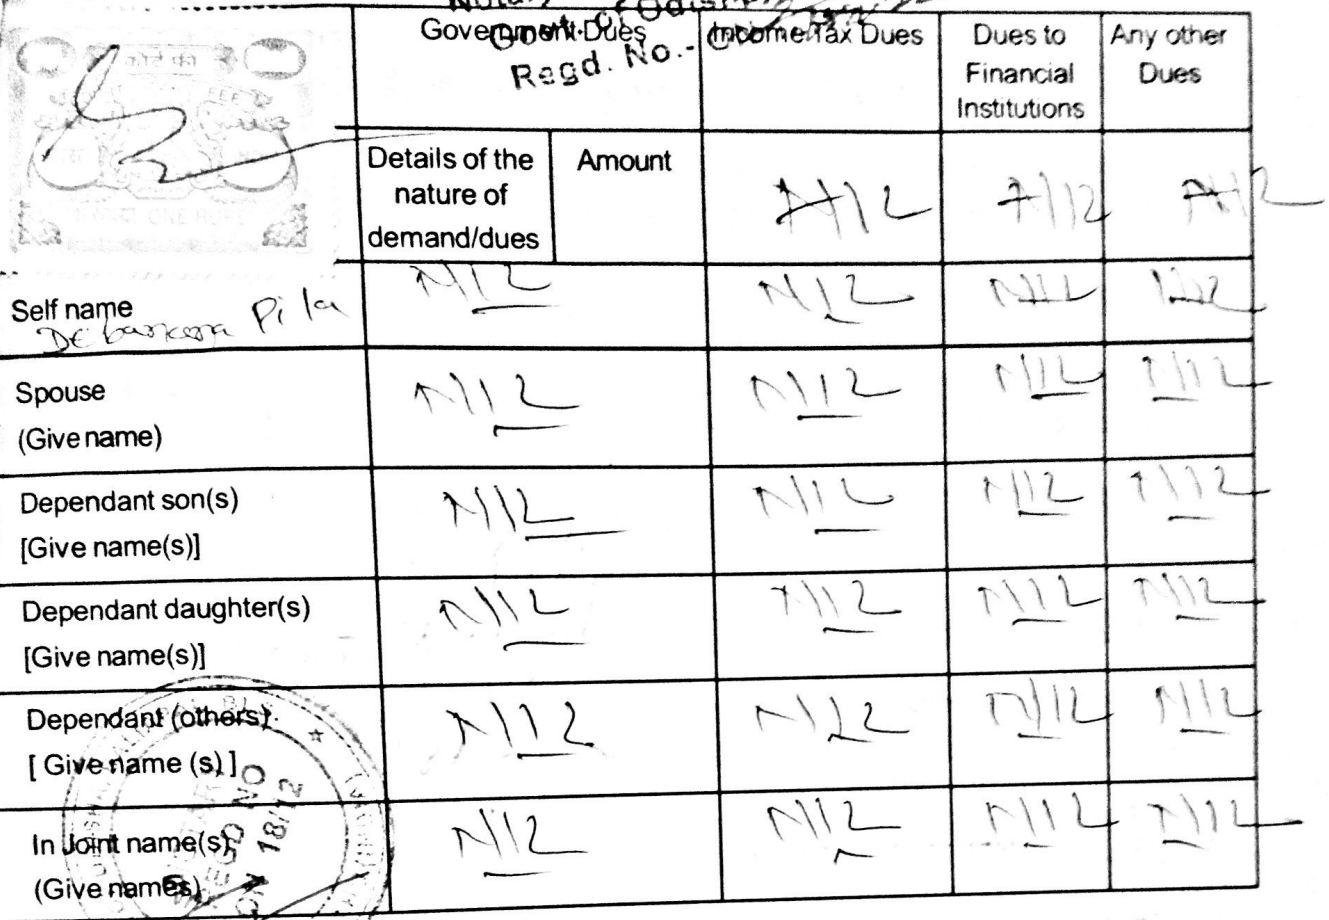 Notary
Govt. Of Odisha
Regd. No.-
Government Dues
Income Tax Dues
Dues to
Financial
Institutions
Any other
Dues
Details of the
nature of
demand/dues
Amount
NIL NIL NIL
ONE RUPEE
Self name
Debarcana Pila
NIL NIL NIL NIL
Spouse
(Give name)
NIL NIL NIL NIL
Dependant son(s)
[Give name(s)]
NIL NIL NIL NIL
Dependant daughter(s)
[Give name(s)]
NIL NIL NIL NIL
Dependant (others)
[ Give name (s) ]
NIL NIL NIL NIL
In Joint name(s)
(Give names)
NIL NIL NIL NIL
REGD NO
ON 18/12